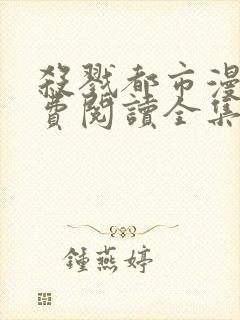 殺戮都市漫
費閱讀全集
鍾燕婷